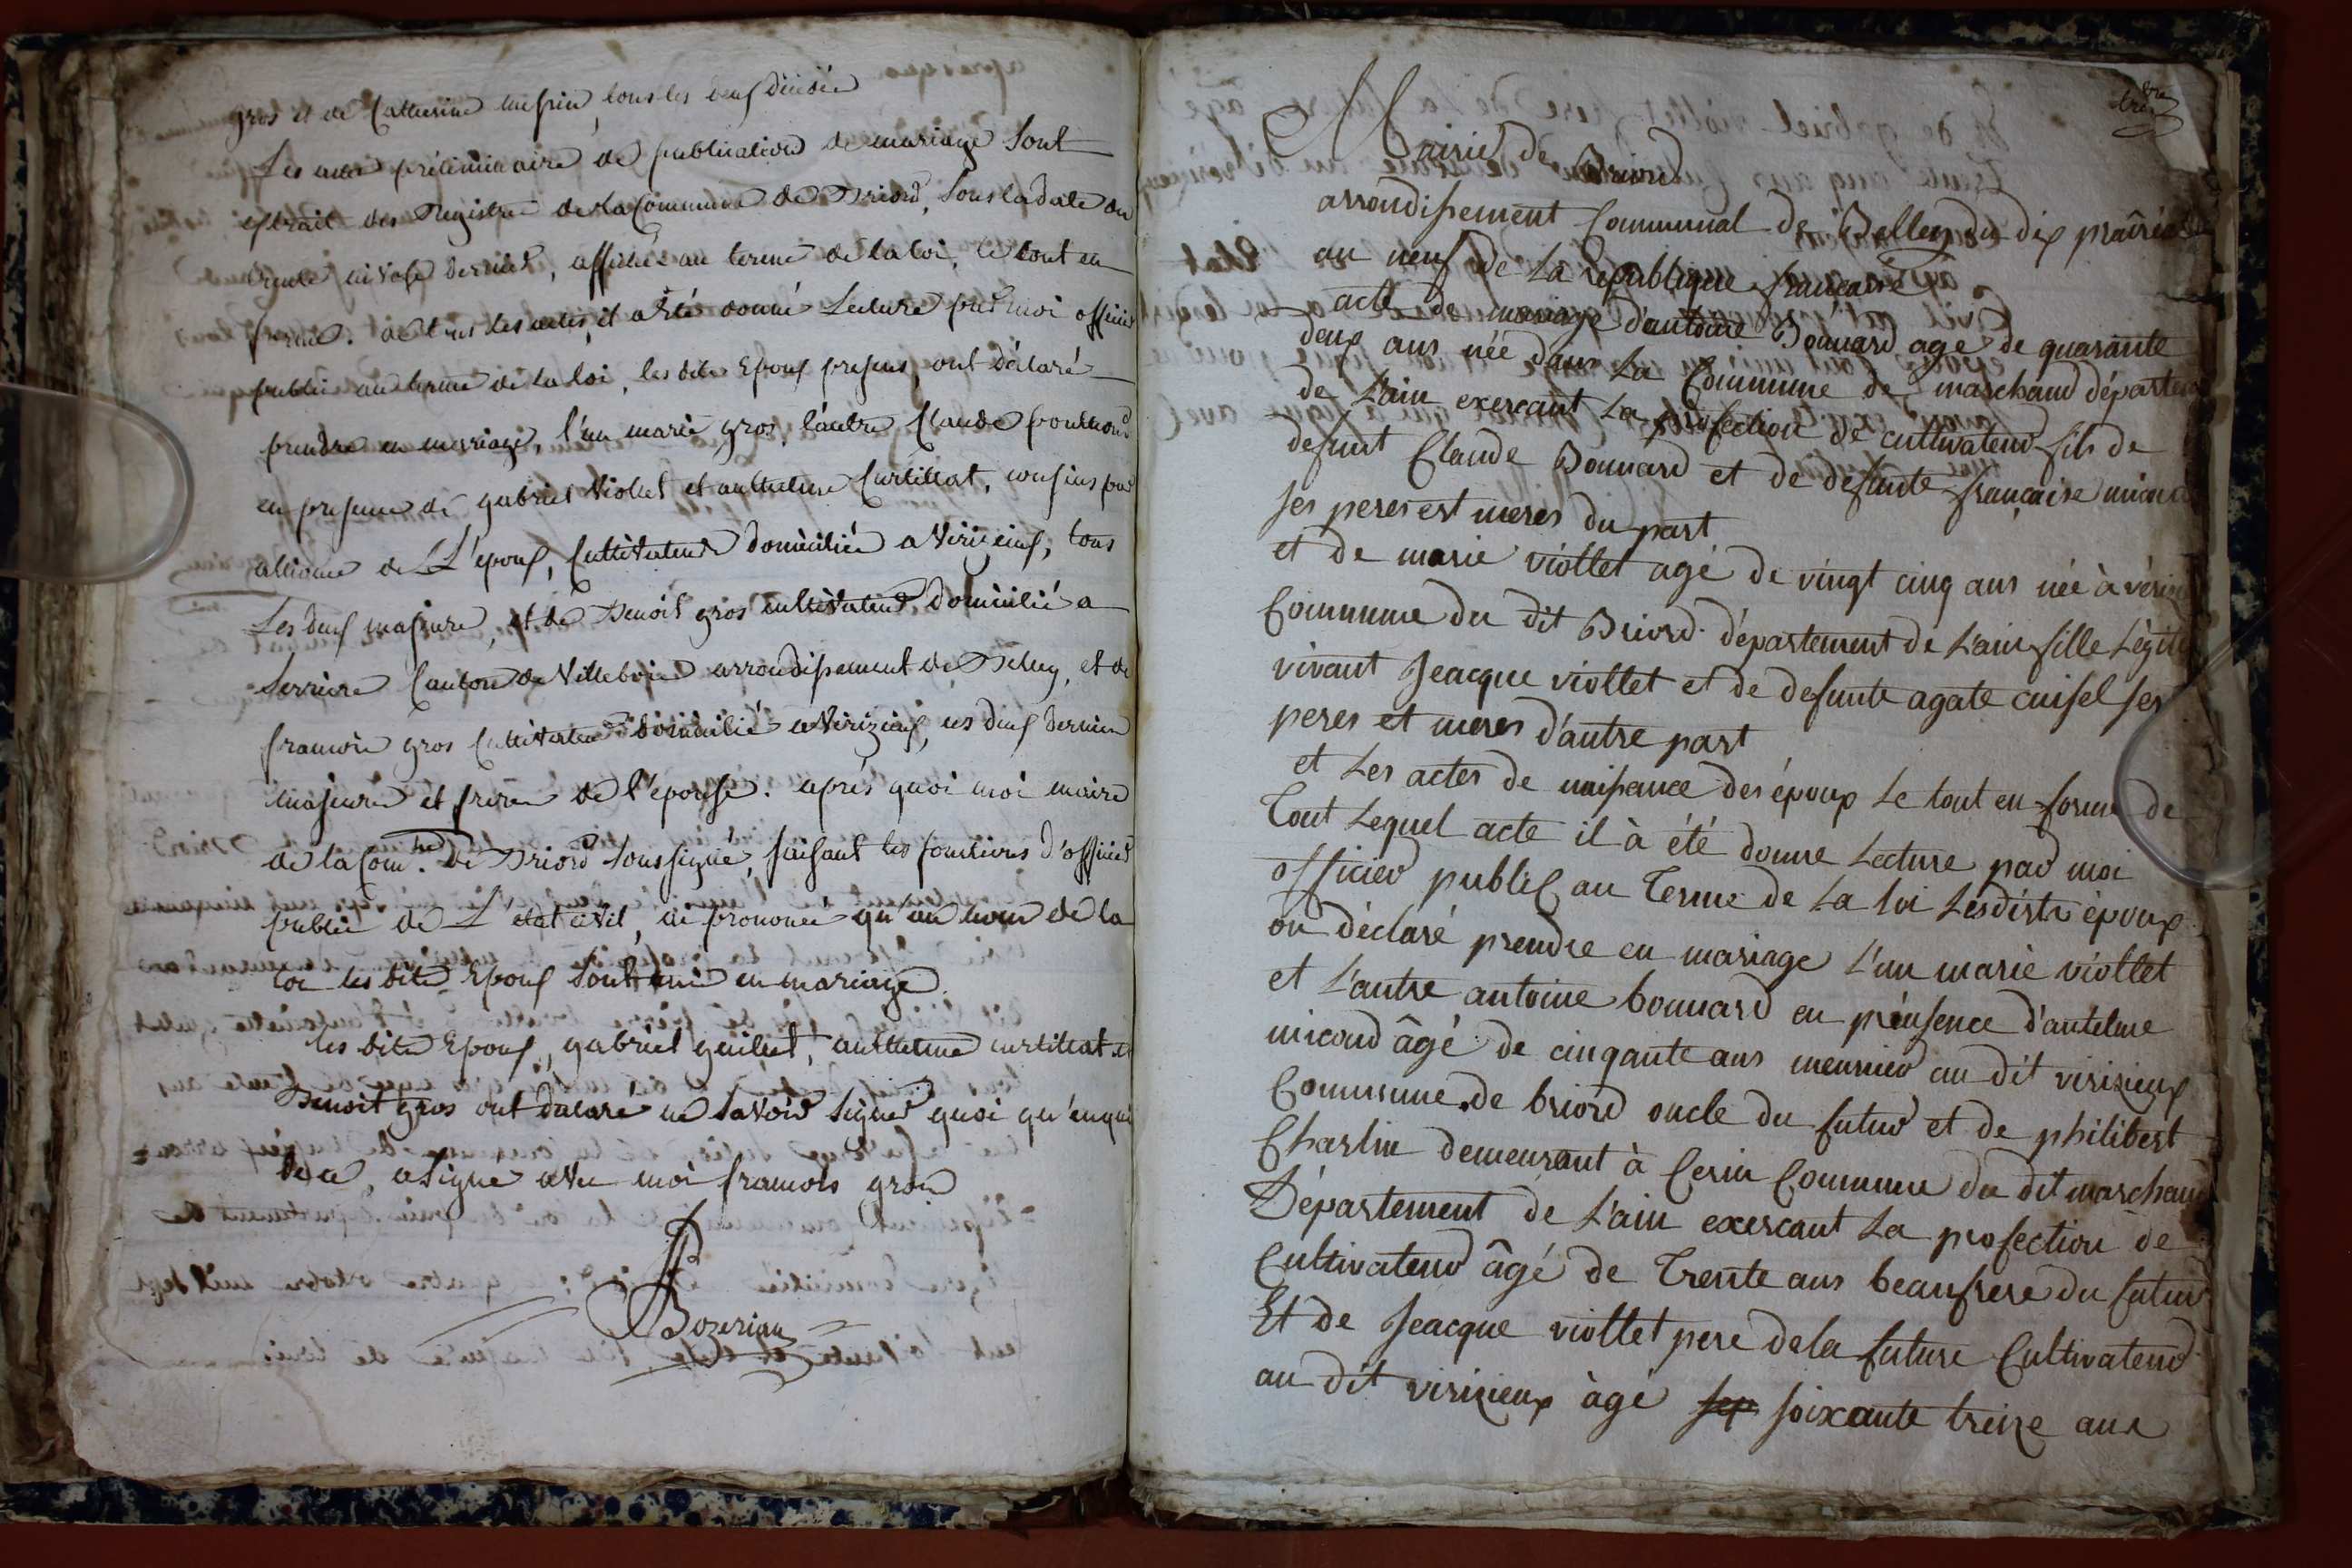 gros et de Catherine mesfin, tous les deux décédés
Les actes préliminaire de publication de mariage sont
extrait des Registre de la Commune de Briord, sous la date du
trente nivose dernier, affichés au terme de la loi, le tout en
forme. de tous les actes, il a été donné Lecture par moi officier
public au terme de la loi, les dits Epoux presens, ont déclaré
prendre en mariage, l'un marie gros, l'autre Claude
en presence de gabriel Viollet et anthelme Curtillat, cousins par
alliance de L'epoux, Cultivateur domiciliés a Virizieux, tous
Les deux majeurs, et de Benoit gros cultivateur, domicilié a
Serriere Canton de Villebois arrondissement de Belley, et de
francois gros Cultivateur domicilié a Virizieux, ces deux dernier
majeurs et freres de l'epouse. après quoi moi maire
de la Com.ne de Briord soussigné, faisant les fonctions d'officier
public de L'état civil, ai prononcé qu'au nom de la
loi les dits Epoux sont unis en mariage.
les dits Epoux, gabriel, anthelme curtillat et
Benoit gros ont déclaré ne savoir signer quoi qu'enquis
a signé avec moi francois gros
Bozerian
Mairie de Briord
arrondissement Communal de Belley du dix prairial
an neuf de la Republique française
acte de mariage d'antoine Bonnard age de quarante
deux ans née dans La Commune de marchand département
de L'ain exercant La profection de cultivateur fils de
defunt Claude Bonnard et de defunte française micoud
ses peres est meres du part
et de marie viollet agé de vingt cinq ans née à
Commune du dit Briord département de L'ain fille Légitime
vivant Jeacque viollet et de defunte agate cuisel ses
peres et meres d'autre part
et Les actes de naissance des époux Le tout en forme de
Tout Lequel acte il à été donné Lecture par moi
officier public au Terme de La loi Lesdists époux
on déclaré prendre en mariage L'un marie viollet
et L'autre antoine bonnard en présence d'antelme
micoud âgé de cinqante ans meunier au dit virizieux
Commune de briord oncle du futur et de philibert
Charlin demeurant à Cerin Commune du dit marchand
Département de L'ain exercant La profection de
Cultivateur âgé de Trente ans beaufrere du futur
Et de Jeacque viollet pere de la future Cultivateur
au dit virizieux àgé sep soixante treize ans